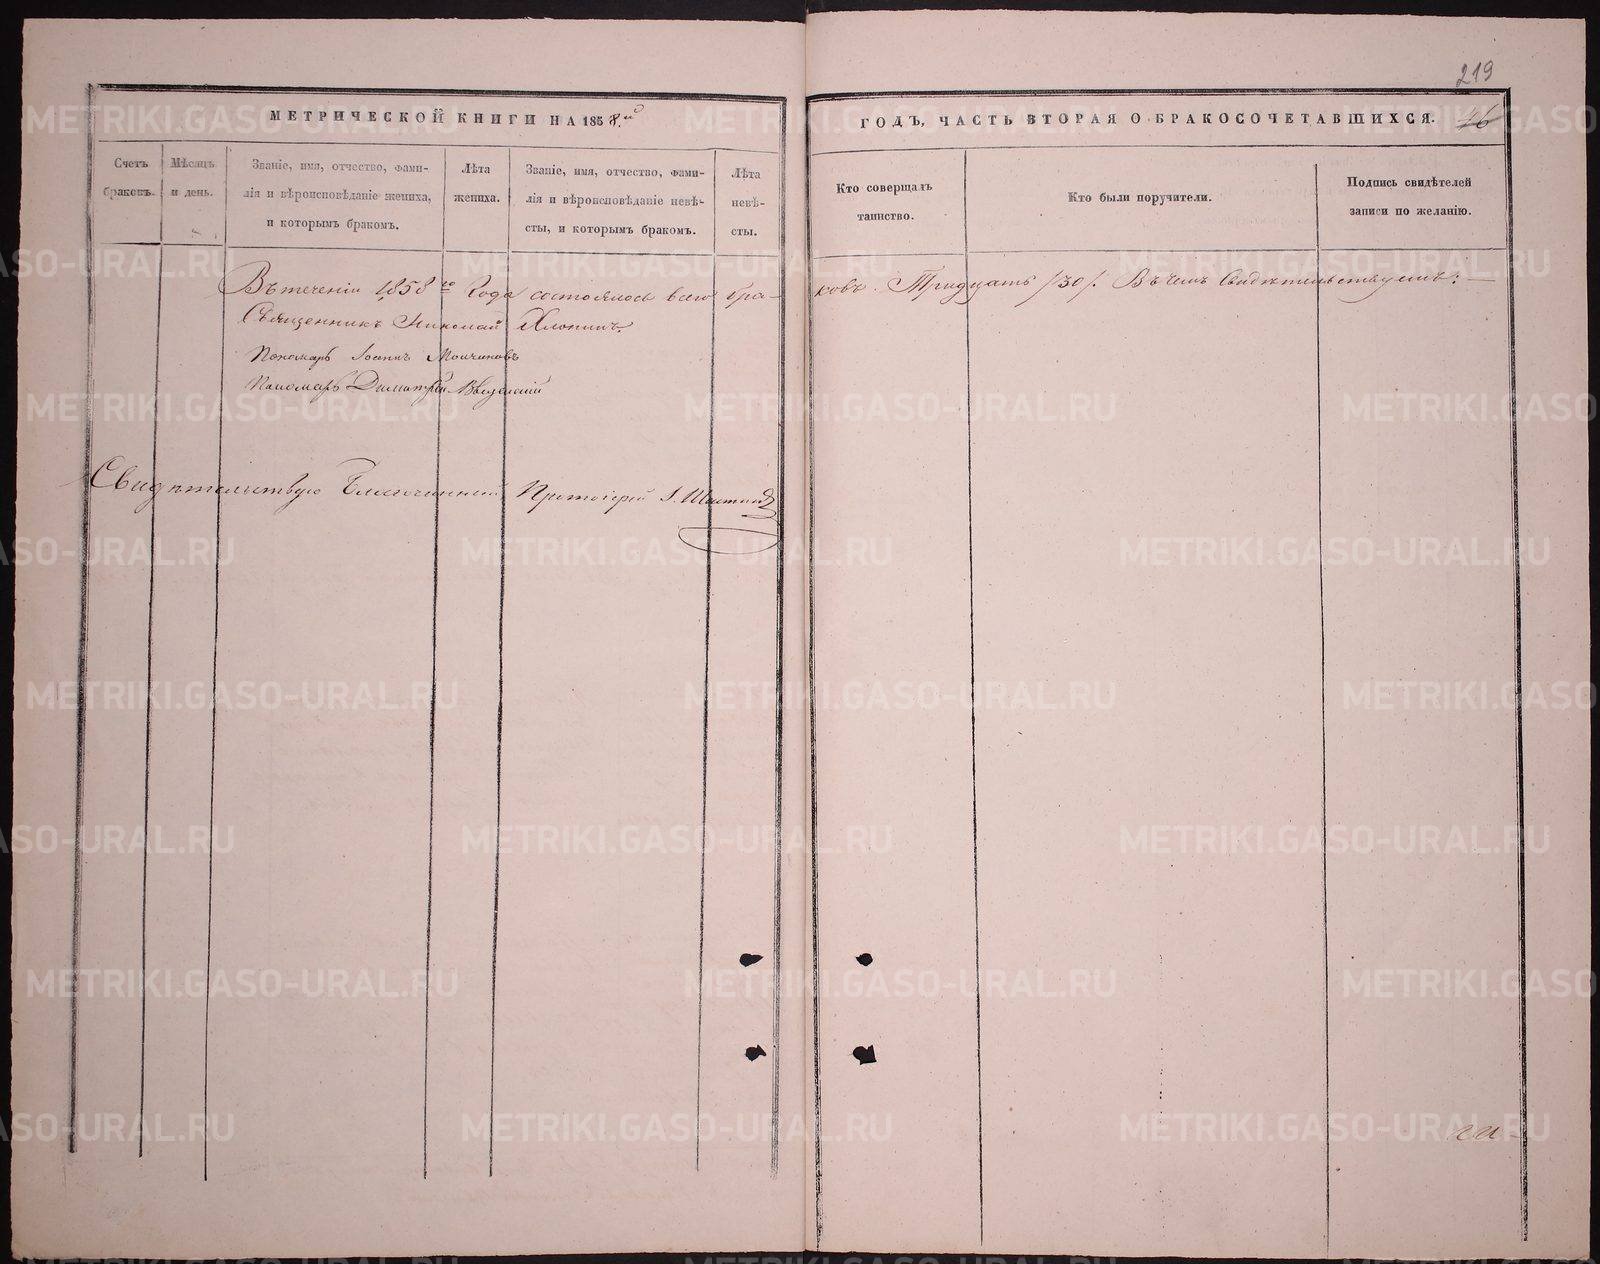 219
МЕТРИЧЕСКОЙ КНИГИ НА 1858.й ГОДЪ, ЧАСТЬ ВТОРАЯ О БРАКОСОЧЕТАВШИХСЯ. 46
Счетъ браковъ.
Мѣсяцъ и день.
Званіе, имя, отчество, фами-
лія и вѣроисповѣданіе жениха,
и которымъ бракомъ.
Лѣта
жениха.
Званіе, имя, отчество, фами-
лія и вѣроисповѣданіе невѣ-
сты, и которымъ бракомъ.
Лѣта
невѣ-
сты.
Кто совершалъ
таинство.
Кто были поручители.
Подпись свидѣтелей
записи по желанію.
Въ теченіи 1858го Года состоялось всего бра-ковъ. Тридцать /30/. Въ чемъ Свидѣтельствуемъ:
Священникъ Николай Хлопинъ.
Пономарь Іоаннъ
Пономарь Димитрій Введенскій
Свидѣтельствую Благочинный Протоіерей І.
METRIKI.GASO-URAL.RU